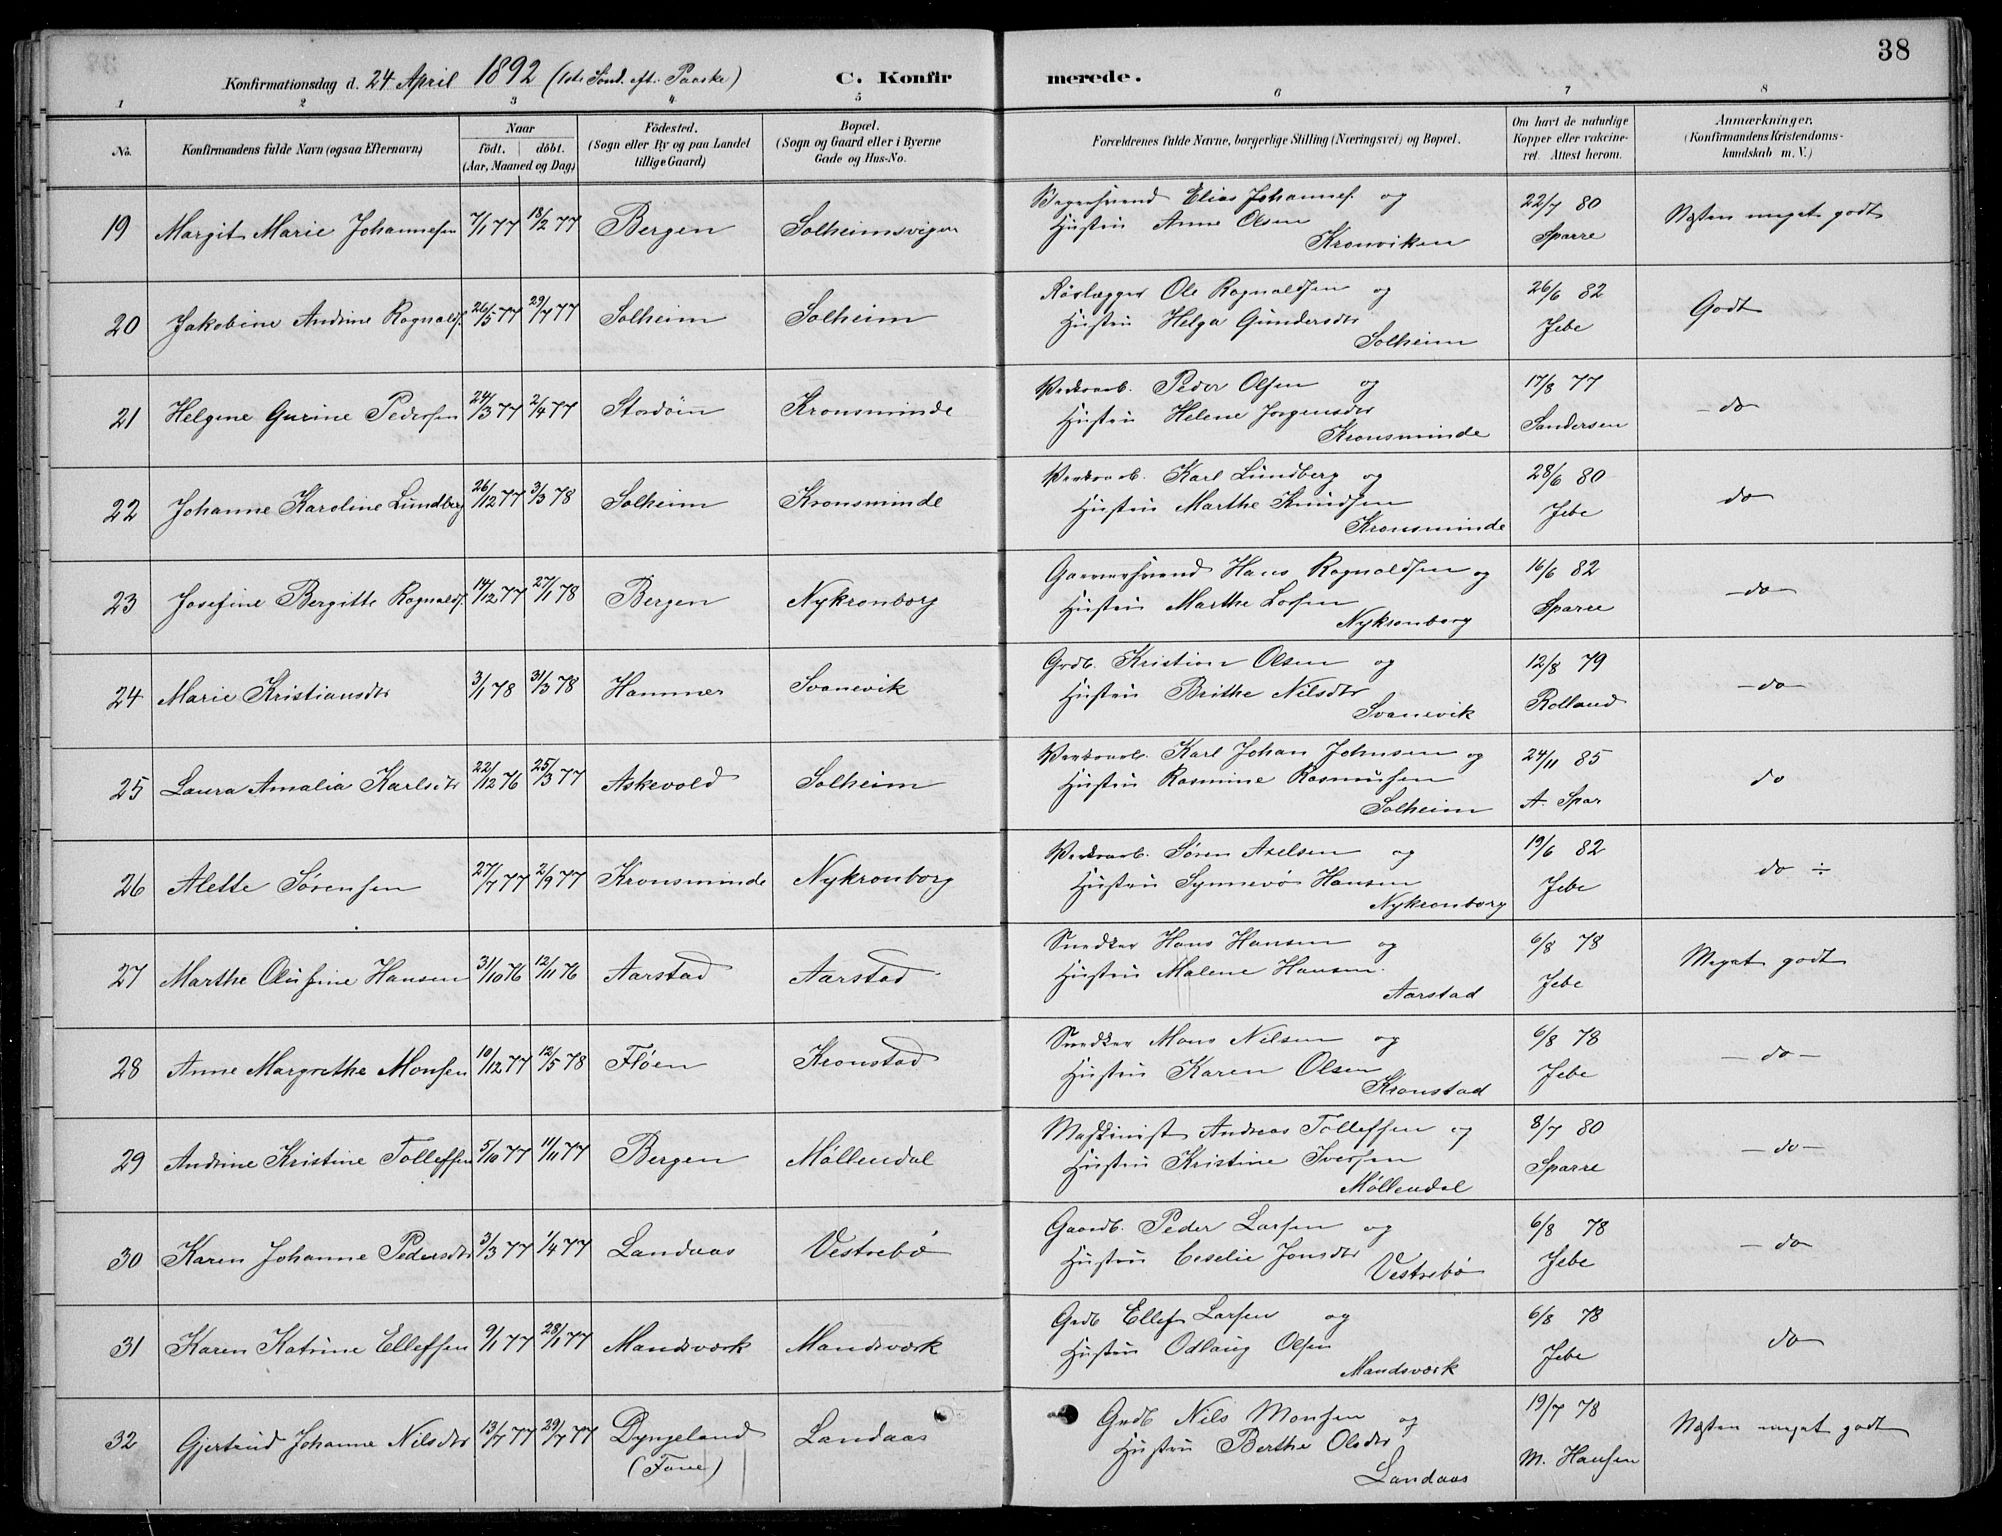 38
Konfirmationsdag d. 24 April 1892 (1ste Sönd. eft. Paaske) C. Konfirmerede.
1 2 3 4 5 6 7 8
No. Konfirmandens fulde Navn (ogsaa Efternavn) Naar födt. döbt. (Aar, Maaned og Dag) Födested. (Sogn eller By og paa Landet tillige Gaard) Bopæl. (Sogn og Gaard eller i Byerne Gade og Hus-No. Forældrenes fulde Navne, borgerlige Stilling (Næringsvei) og Bopæl. Om havt de naturlige Kopper eller vakcineret. Attest herom. Anmærkninger. (Konfirmandens Kristendomskundskab m. V.)
19 Margit Marie Johannesen 7/1 77 18/2 77 Bergen Solheimsvigen Bagersvend Elias Johannes. og 22/7 80 Næsten meget godt
Hustru Anne Olsen Sparre
Kronviken
20 Jakobine Andrine Ragnalds. 26/5 77 29/7 77 Solheim Solheim Rörlægger Ole Ragnaldsen og 26/6 82 Godt
Hustru Helga Gundersdtr Jebe
Solheim
21 Helgene Gurine Pedersen 24/3 77 2/4 77 Stordöen Kronsminde Verksarb. Peder Olsen og 17/8 77 do
Hustru Helene Jörgensdtr Sandersen
Kronsminde
22 Johanne Karoline Lundberg 26/12 77 3/3 78 Solheim Kronsminde Verksarb. Karl Lundberg og 28/6 80 do
Hustru Marthe Knudsen Jebe
Kronsminde
23 Josefine Bergitte Ragnalds. 14/12 77 27/1 78 Bergen Nykronborg Garversvend Hans Ragnaldsen og 16/6 82 do
Hustru Marthe Losen Sparre
Nykronborg
24 Marie Kristiansdtr 3/1 78 31/3 78 Hammer Svanevik Grdb. Kristian Olsen og 12/8 79 do
Hustru Brithe Nilsdtr Rolland
Svanevik
25 Laura Amalia Karlsdtr 22/12 76 25/3 77 Askevold Solheim Verksarb. Karl Johan Johnsen og 24/11 85 do
Hustru Rasmine Rasmusen A. Spar
Solheim
26 Alette Sörensen 27/7 77 2/9 77 Kronsminde Nykronborg Verksarb. Sören Axelsen og 19/6 82 do ÷
Hustru Synnevö Hansen Jebe
Nykronborg
27 Marthe Olufine Hansen 31/10 76 12/11 76 Aarstad Aarstad Snedker Hans Hansen og 6/8 78 Meget godt
Hustru Malene Hansen Jebe
Aarstad
28 Anne Margrethe Monsen 10/12 77 12/5 78 Flöen Kronstad Snedker Mons Nilsen og 6/8 78 do
Hustru Karen Olsen Jebe
Kronstad
29 Andrine Kristine Tollefsen 5/10 77 11/11 77 Bergen Möllendal Maskinist Andreas Tollefsen og 8/7 80 do
Hustru Kristine Iversen Sparre
Möllendal
30 Karen Johanne Pedersdtr 3/3 77 1/4 77 Landaas Vestrebö Gaardb. Peder Larsen og 6/8 78 do
Hustru Ceselie Jonsdtr Jebe
Vestrebö
31 Karen Katrine Ellefsen 9/1 77 28/1 77 Mandsværk Mandsværk Grdb Ellef Larsen og 6/8 78 do
Hustru Odlaug Olsen Jebe
Mandsværk
32 Gjertrud Johanne Nilsdtr 13/7 77 29/7 77 Dyngeland (Fane) Landaas Grdb Nils Monsen og 19/7 78 Næsten meget godt
Hustru Berthe Olsdtr M. Hansen
Landaas